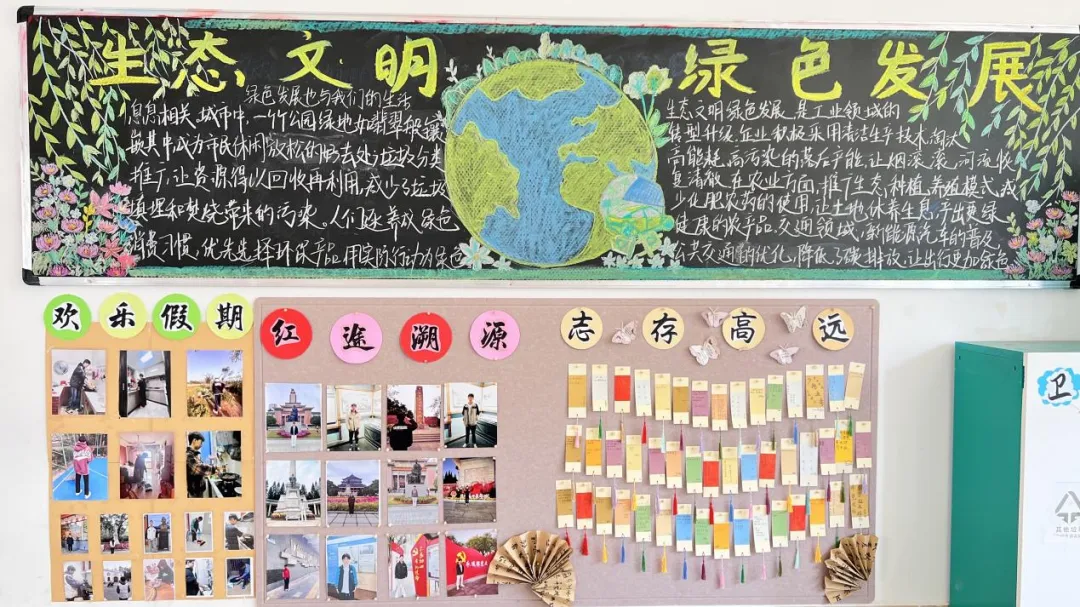 生态文明
绿色发展
绿色发展也与我们的生活
息息相关,城市中,一个公园绿地如翡翠般镶
嵌其中成为市民休闲放松的好去处垃圾分类
推广,让资源得以回收再利用,减少了垃圾
填埋和焚烧带来的污染。人们逐养成绿色
消费习惯,优先选择环保产品用实际行动为绿色
生态文明绿色发展,是工业领域的
转型升级,企业积极采用清洁生产技术,淘汰
高能耗、高污染的落后产能,让烟滚滚,河流恢
复清澈,在农业方面,推广生态,种植,养殖模式,减
少化肥农药的使用,让土地休养生息,产出更绿
健康的农产品。交通领域,新能源汽车的普及
公共交通的优化,降低了碳排放,让出行更加绿色
欢乐假期
红途溯源
志存高远
卫